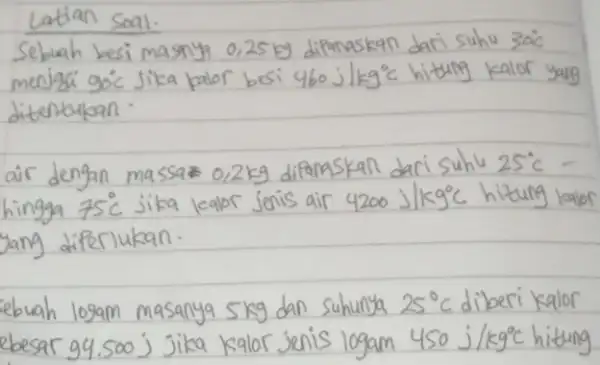 Latian Soal.
Sebuah besi masnya 0,25 kg dipanaskan dari suhu 30°c
menjadi 90°c Jika kalor besi 460 j/kg°c hitung kalor yang
ditentukan.
air dengan massa 0,2 kg dipanaskan dari suhu 25°c -
hingga 75°c jika kalor jenis air 4200 J/kg°c hitung kalor
yang diperlukan.
ebuah logam masanya 5 kg dan suhunya 25°c diberi kalor
ebesar 94.500 j jika kalor jenis logam 450 j/kg°c hitung